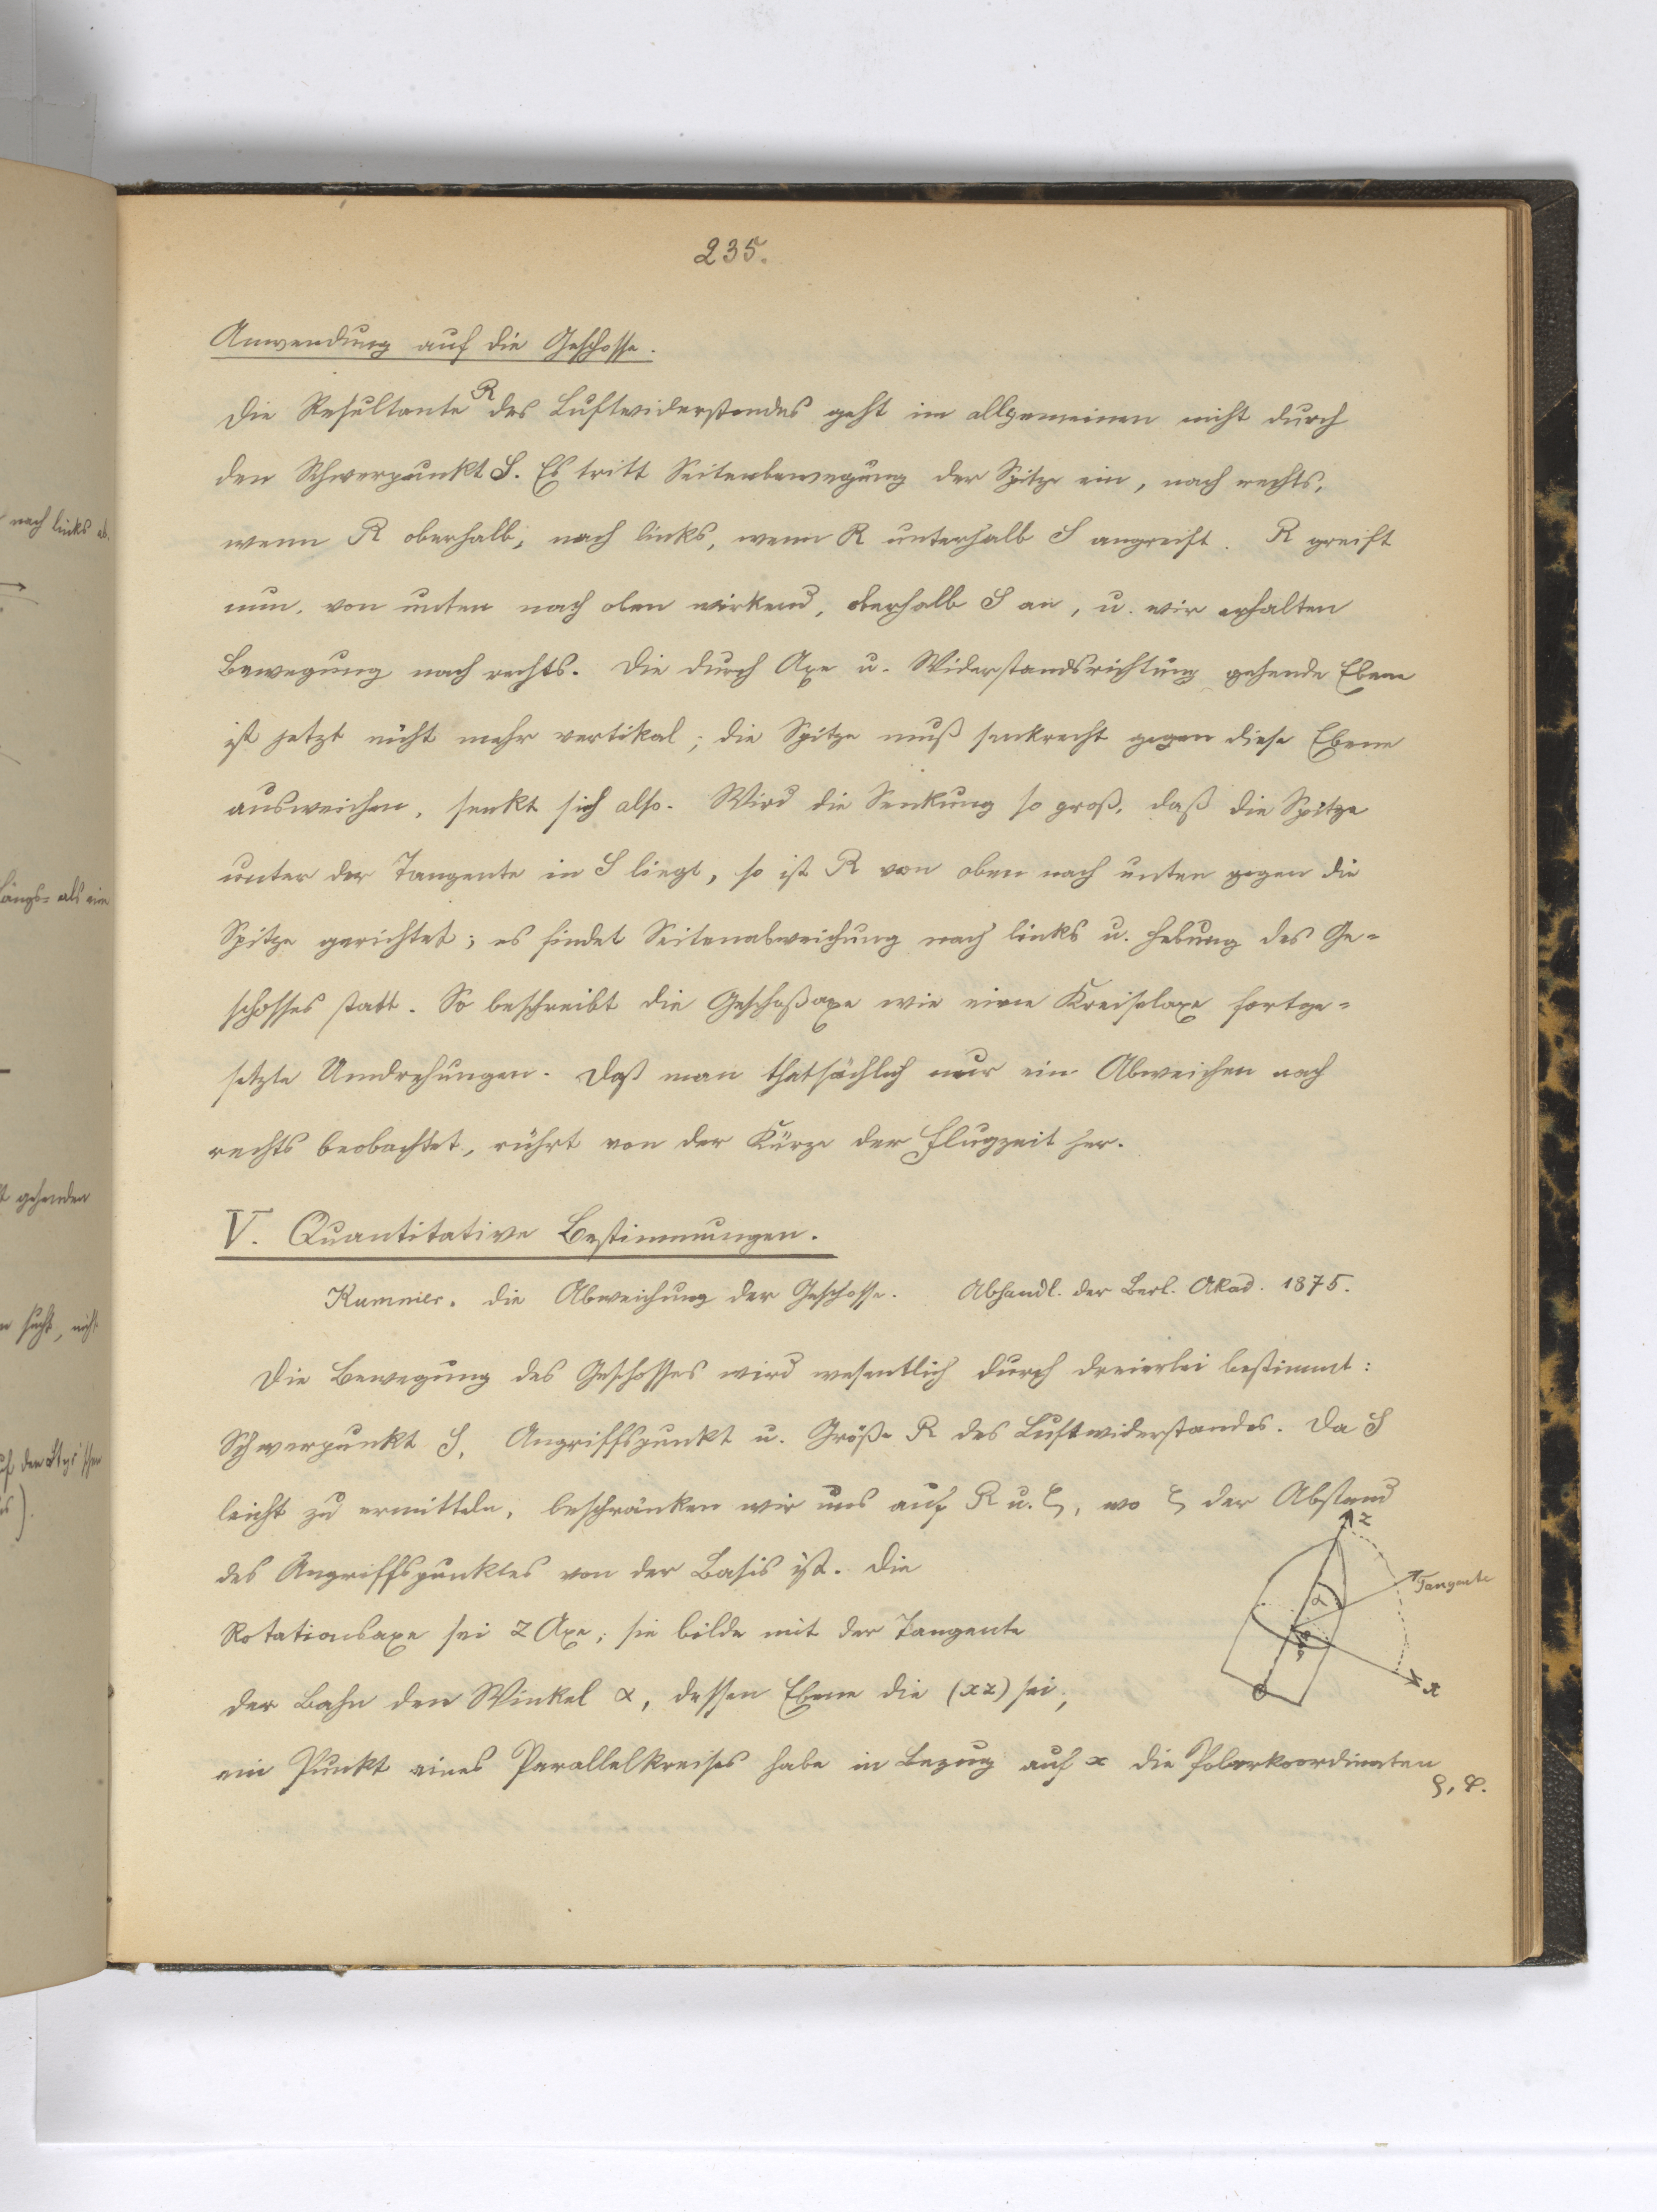 235.
Anwendung auf die Geschosse.
Die Resultante R des Luftwiderstandes geht im allgemeinen nicht durch
den Schwerpunkt S. Es tritt Seitenbewegung der Spitze ein, nach rechts,
wenn R oberhalb; nach links, wenn R unterhalb S angreift. R greift
nun, von unten nach oben wirkend, oberhalb S an, u. wir erhalten
Bewegung nach rechts. Die durch Axe u. Widerstandsrichtung gehende Ebene
ist jetzt nicht mehr vertikal; die Spitze muß senkrecht gegen diese Ebene
ausweichen, senkt sich also. Wird die Senkung so groß, daß die Spitze
unter der Tangente in S liegt, so ist R von oben nach unten gegen die
Spitze gerichtet; es findet Seitenabweichung nach links u. Hebung des Ge-
schosses statt. So beschreibt die Geschoßaxe wie eine Kreiselaxe fortge-
setzte Umdrehungen. Daß man thatsächlich nur ein Abweichen nach
rechts beobachtet, rührt von der Kürze der Flugzeit her.
V. Quantitative Bestimmungen.
Kummer. Die Abweichung der Geschosse. Abhandl. der Berl. Akad. 1875.
Die Bewegung des Geschosses wird wesentlich durch dreierlei bestimmt:
Schwerpunkt S, Angriffspunkt u. Größe R des Luftwiderstandes. Da S
leicht zu ermitteln, beschränken wir uns auf R u. ζ, wo ζ der Abstand
des Angriffspunktes von der Basis ist. Die
Rotationsaxe sei z Axe; sie bilde mit der Tangente
der Bahn den Winkel α, dessen Ebene die (xz) sei;
ein Punkt eines Parallelkreises habe in Bezug auf x die Polarkoordinaten
ρ, φ.
z
Tangente
α
x
nach links ab.
Längs- als ein
gehenden
sucht, nicht